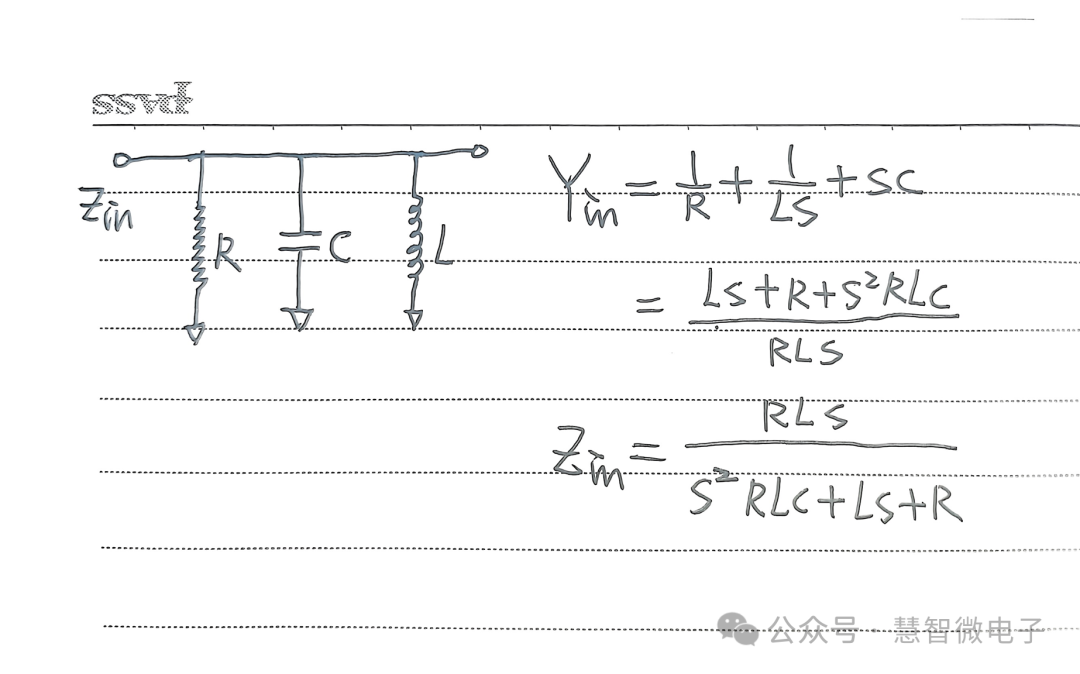 pass
Zin
R
C
L
Yin = 1/R + 1/LS + SC
= (LS+R+S²RLC)/RLS
Zin = RLS/(S²RLC+LS+R)
公众号 · 慧智微电子